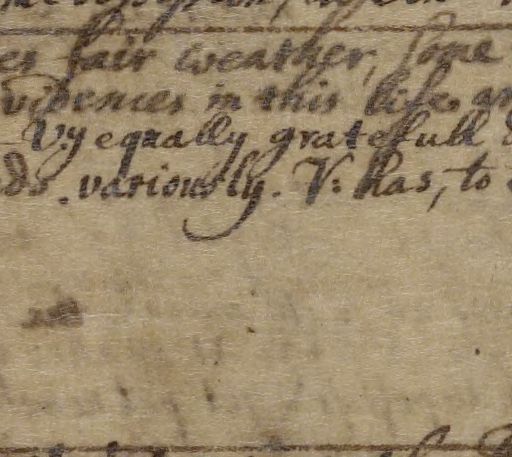 es fair weather, some
vidences in this life, gr
V.y equally gratefull
ds. variously. V: has, to